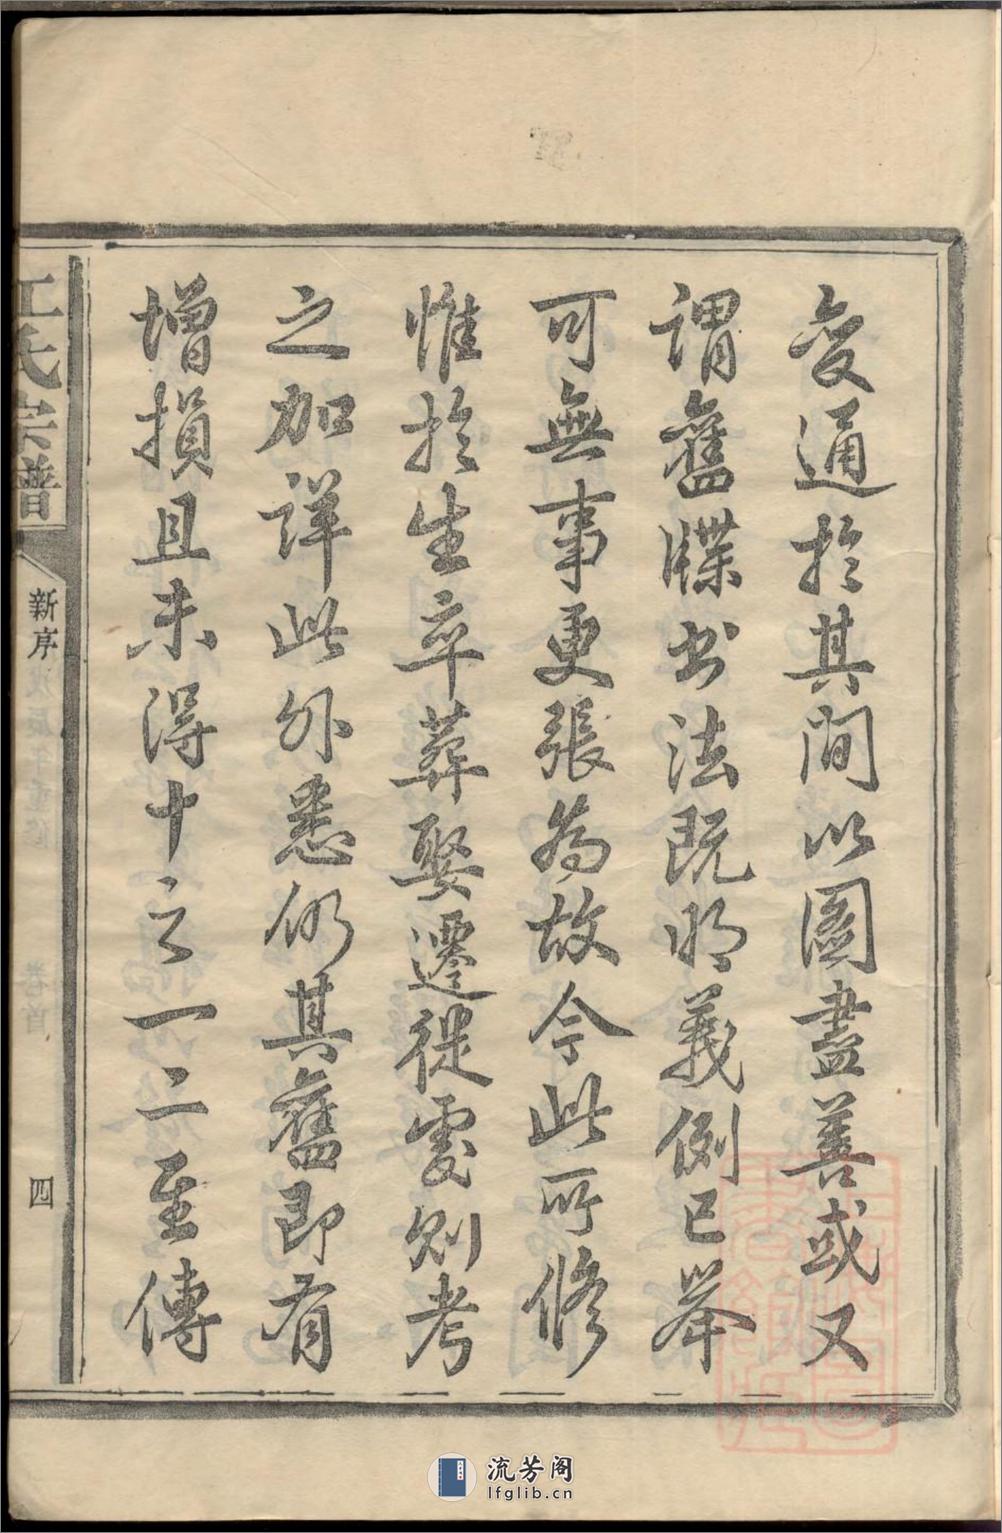 變通於其間以圖盡善或又
謂舊牒书法既明義例已举
可無事更張為故今此所修
惟於生卒葬娶遷徙處則考
之加詳此外悉仍其舊即有
增損且未得十之一二至傳
江氏宗譜
新序
四
流芳阁
lfglib.cn